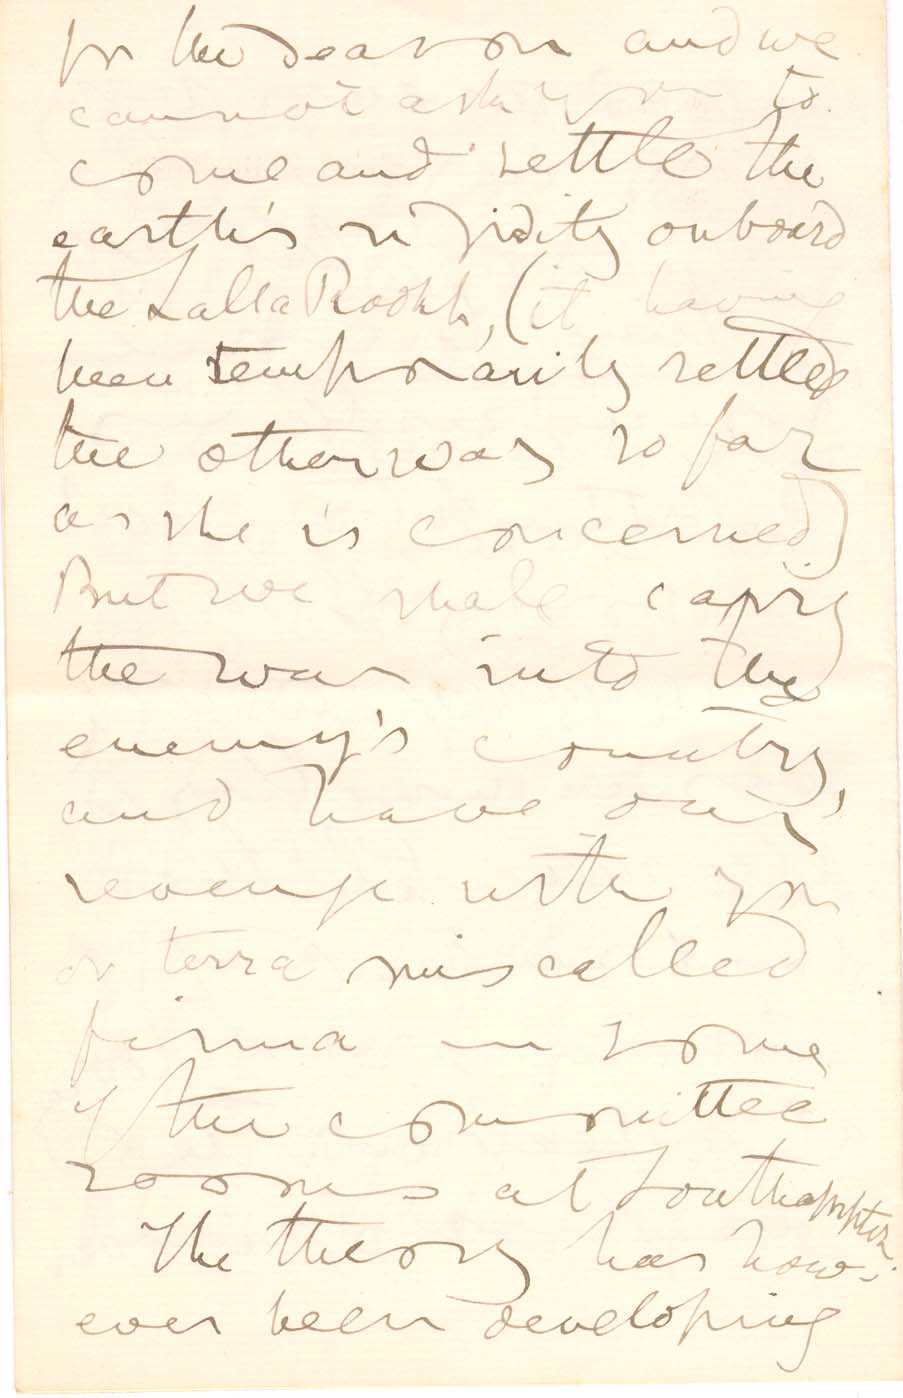 for the season and we
cannot ask you to
come and settle the
earth's rigidity onboard
the Lalla Rookh, (it having
been temporarily settled
the other way so far
as she is concerned)
But we shall carry
the war into the
enemy's country,
and have our
revenge with you
on terra miscalled
firma in some
of the committee
rooms at Southampton.
The theory has how-
ever been developing